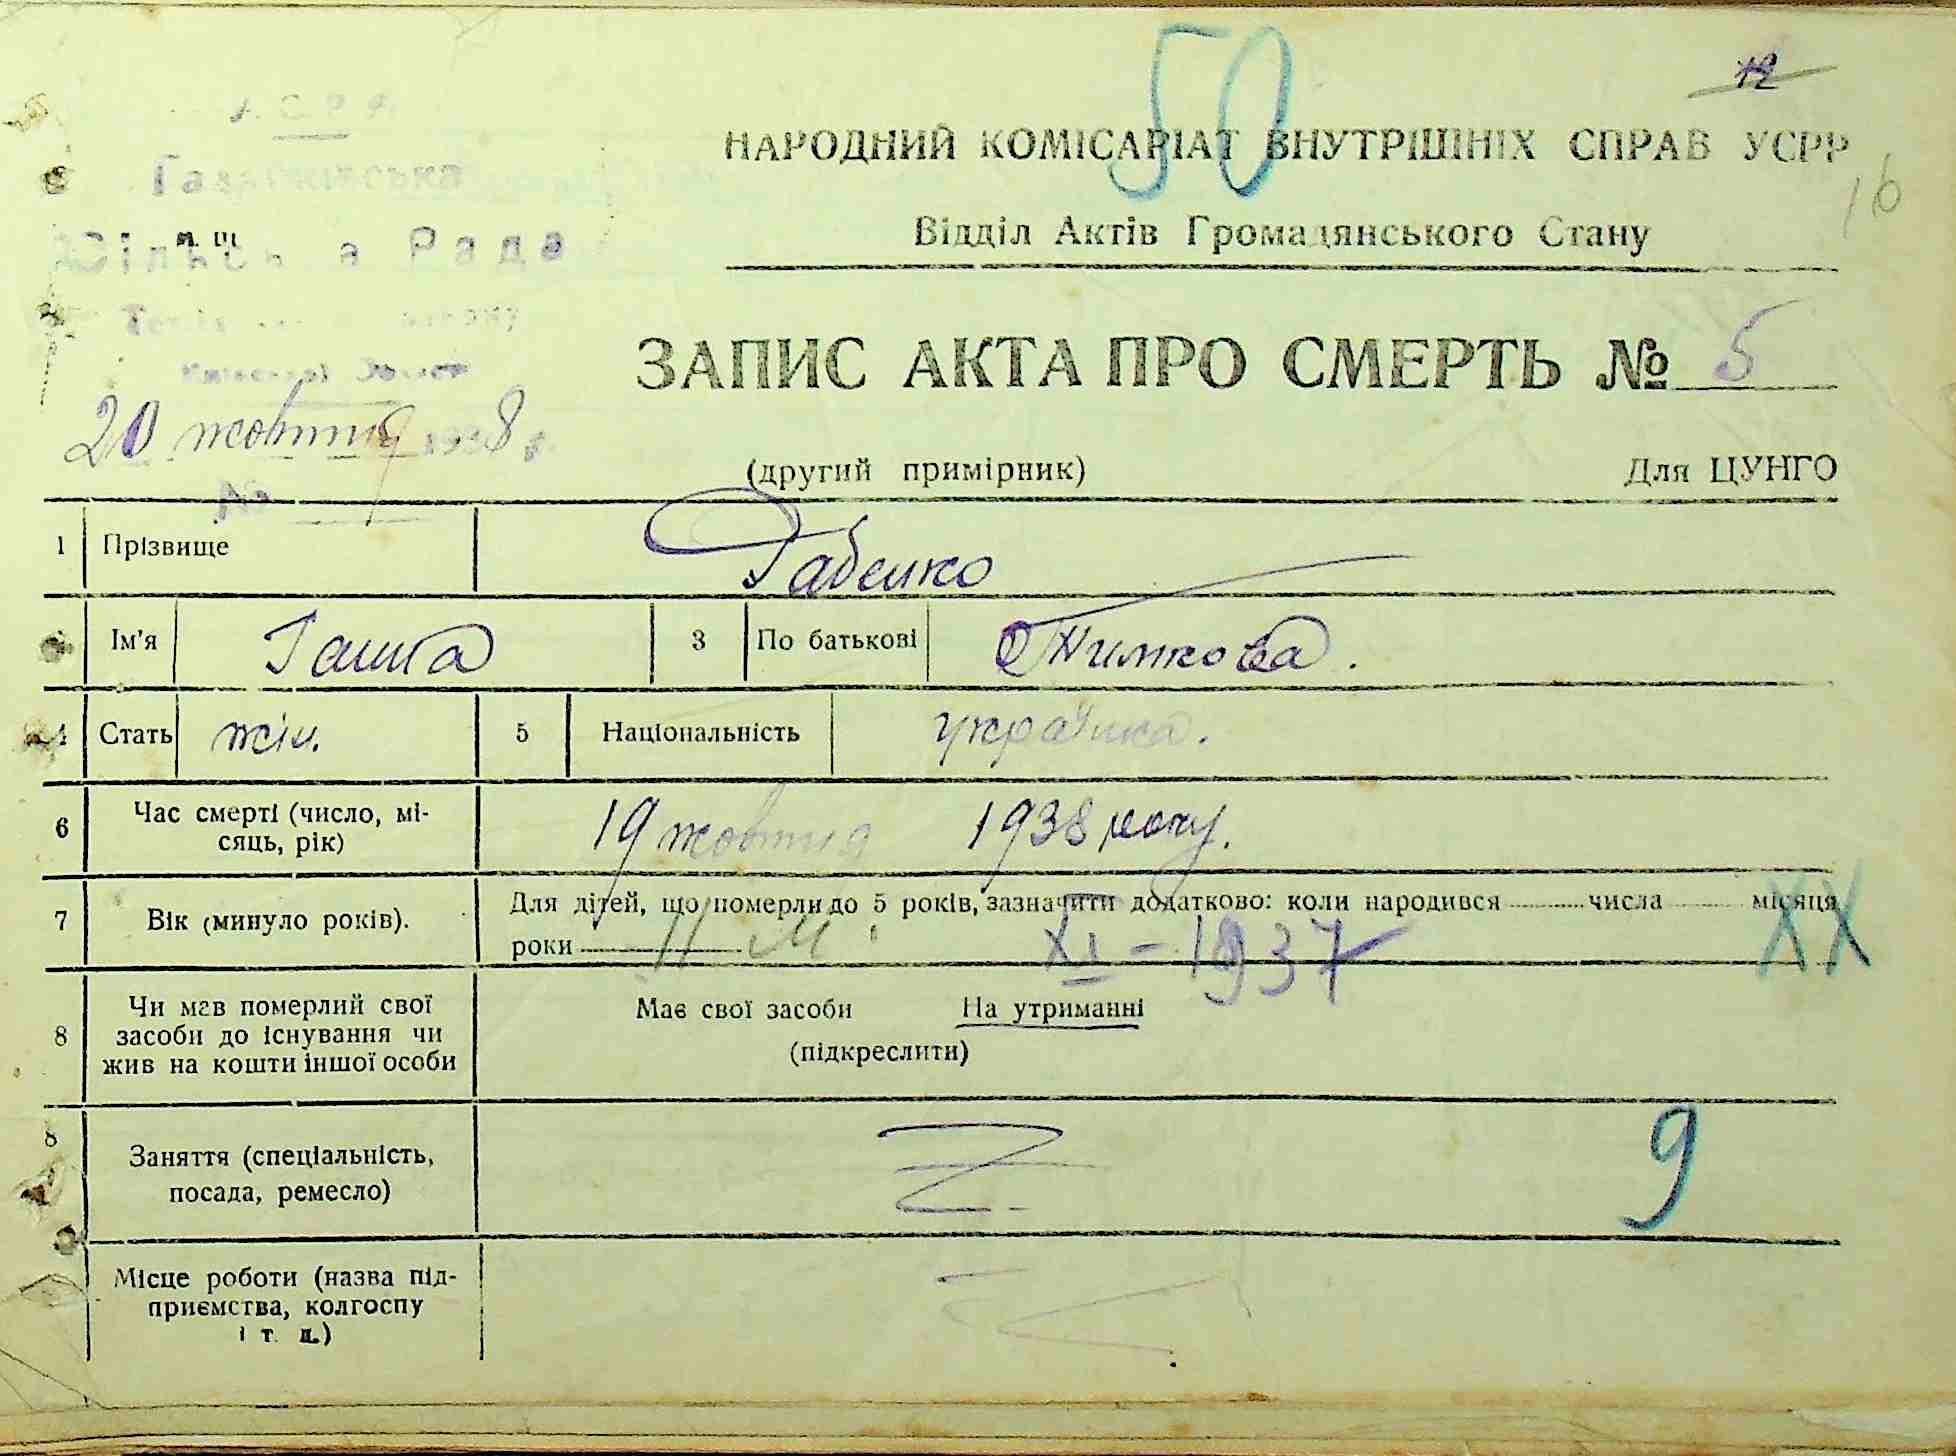 50
12
НАРОДНИЙ КОМІСАРІАТ ВНУТРІШНІХ СПРАВ УСРР
16
Відділ Актів Громадянського Стану
Сільська Рада
ЗАПИС АКТА ПРО СМЕРТЬ № 5
20 жовтня 1938 р.
(другий примірник) Для ЦУНГО
№
1 Прізвище Бабенко
Ім'я Ганна 3 По батькові Тимкова.
4 Стать жін. 5 Національність українка.
6 Час смерті (число, мі-
сяць, рік) 19 жовтня 1938 року.
7 Вік (минуло років). Для дітей, що померли до 5 років, зазначити додатково: коли народився числа місяця
роки 11 м. XI – 1937 XX
8 Чи мав померлий свої
засоби до існування чи
жив на кошти іншої особи
Має свої засоби На утриманні
(підкреслити)
8 Заняття (спеціальність,
посада, ремесло)
9
Місце роботи (назва під-
приємства, колгоспу
і т. д.)